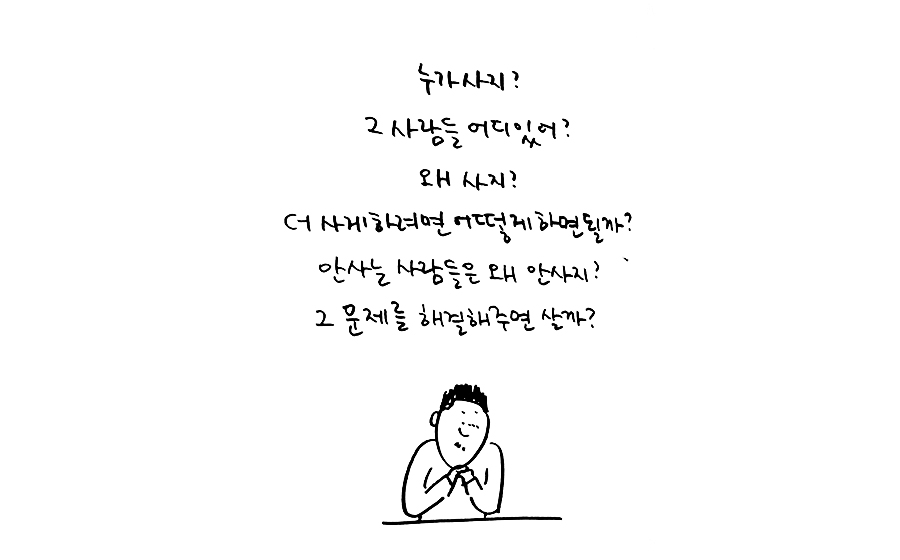 누가 사지?
그 사람들 어디있어?
왜 사지?
더 사게하려면 어떻게하면될까?
안사는 사람들은 왜 안사지?
그 문제를 해결해주면 살까?